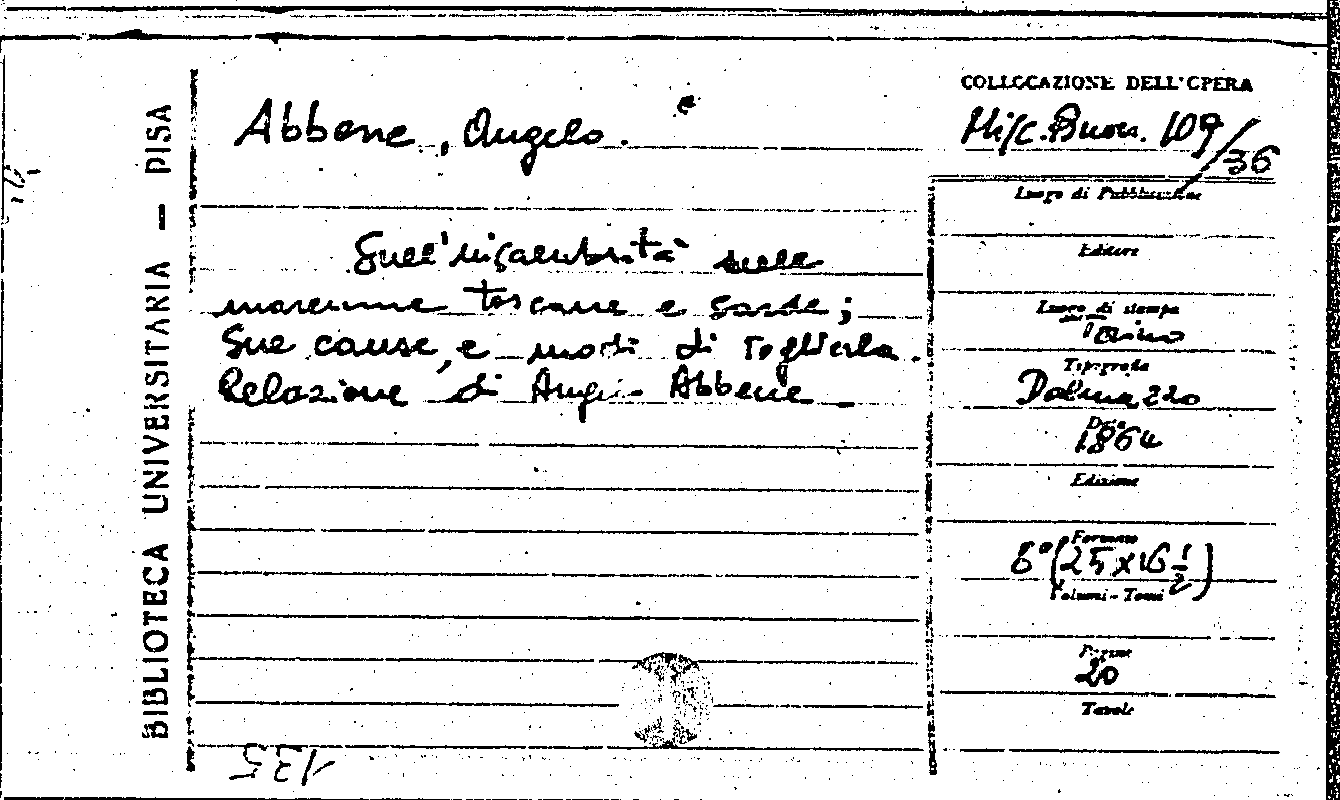 BIBLIOTECA UNIVERSITARIA — PISA
Abbene, Angelo.
Sull'insalubrità delle
maremme toscane e sarde;
Sue cause, e modi di toglierla.
Relazione di Angelo Abbene
135
COLLOCAZIONE DELL'OPERA
Misc. Buon. 109/36
Luogo di Pubblicazione
Editore
Luogo di stampa
Torino
Tipografia
Dalmazzo
Data
1864
Edizione
Formato
8° (25 x 16 1/2)
Volumi - Tomi
Pagine
20
Tavole